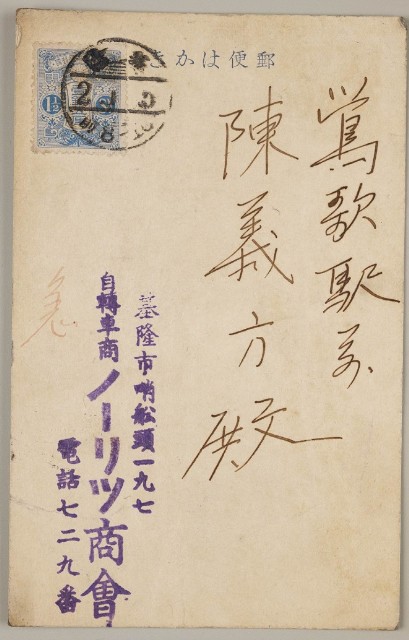 郵便はかき
鶯歌駅前
陳義方殿
基隆市哨船頭一九七
自轉車商
ノーリツ商會
電話七二九番
急